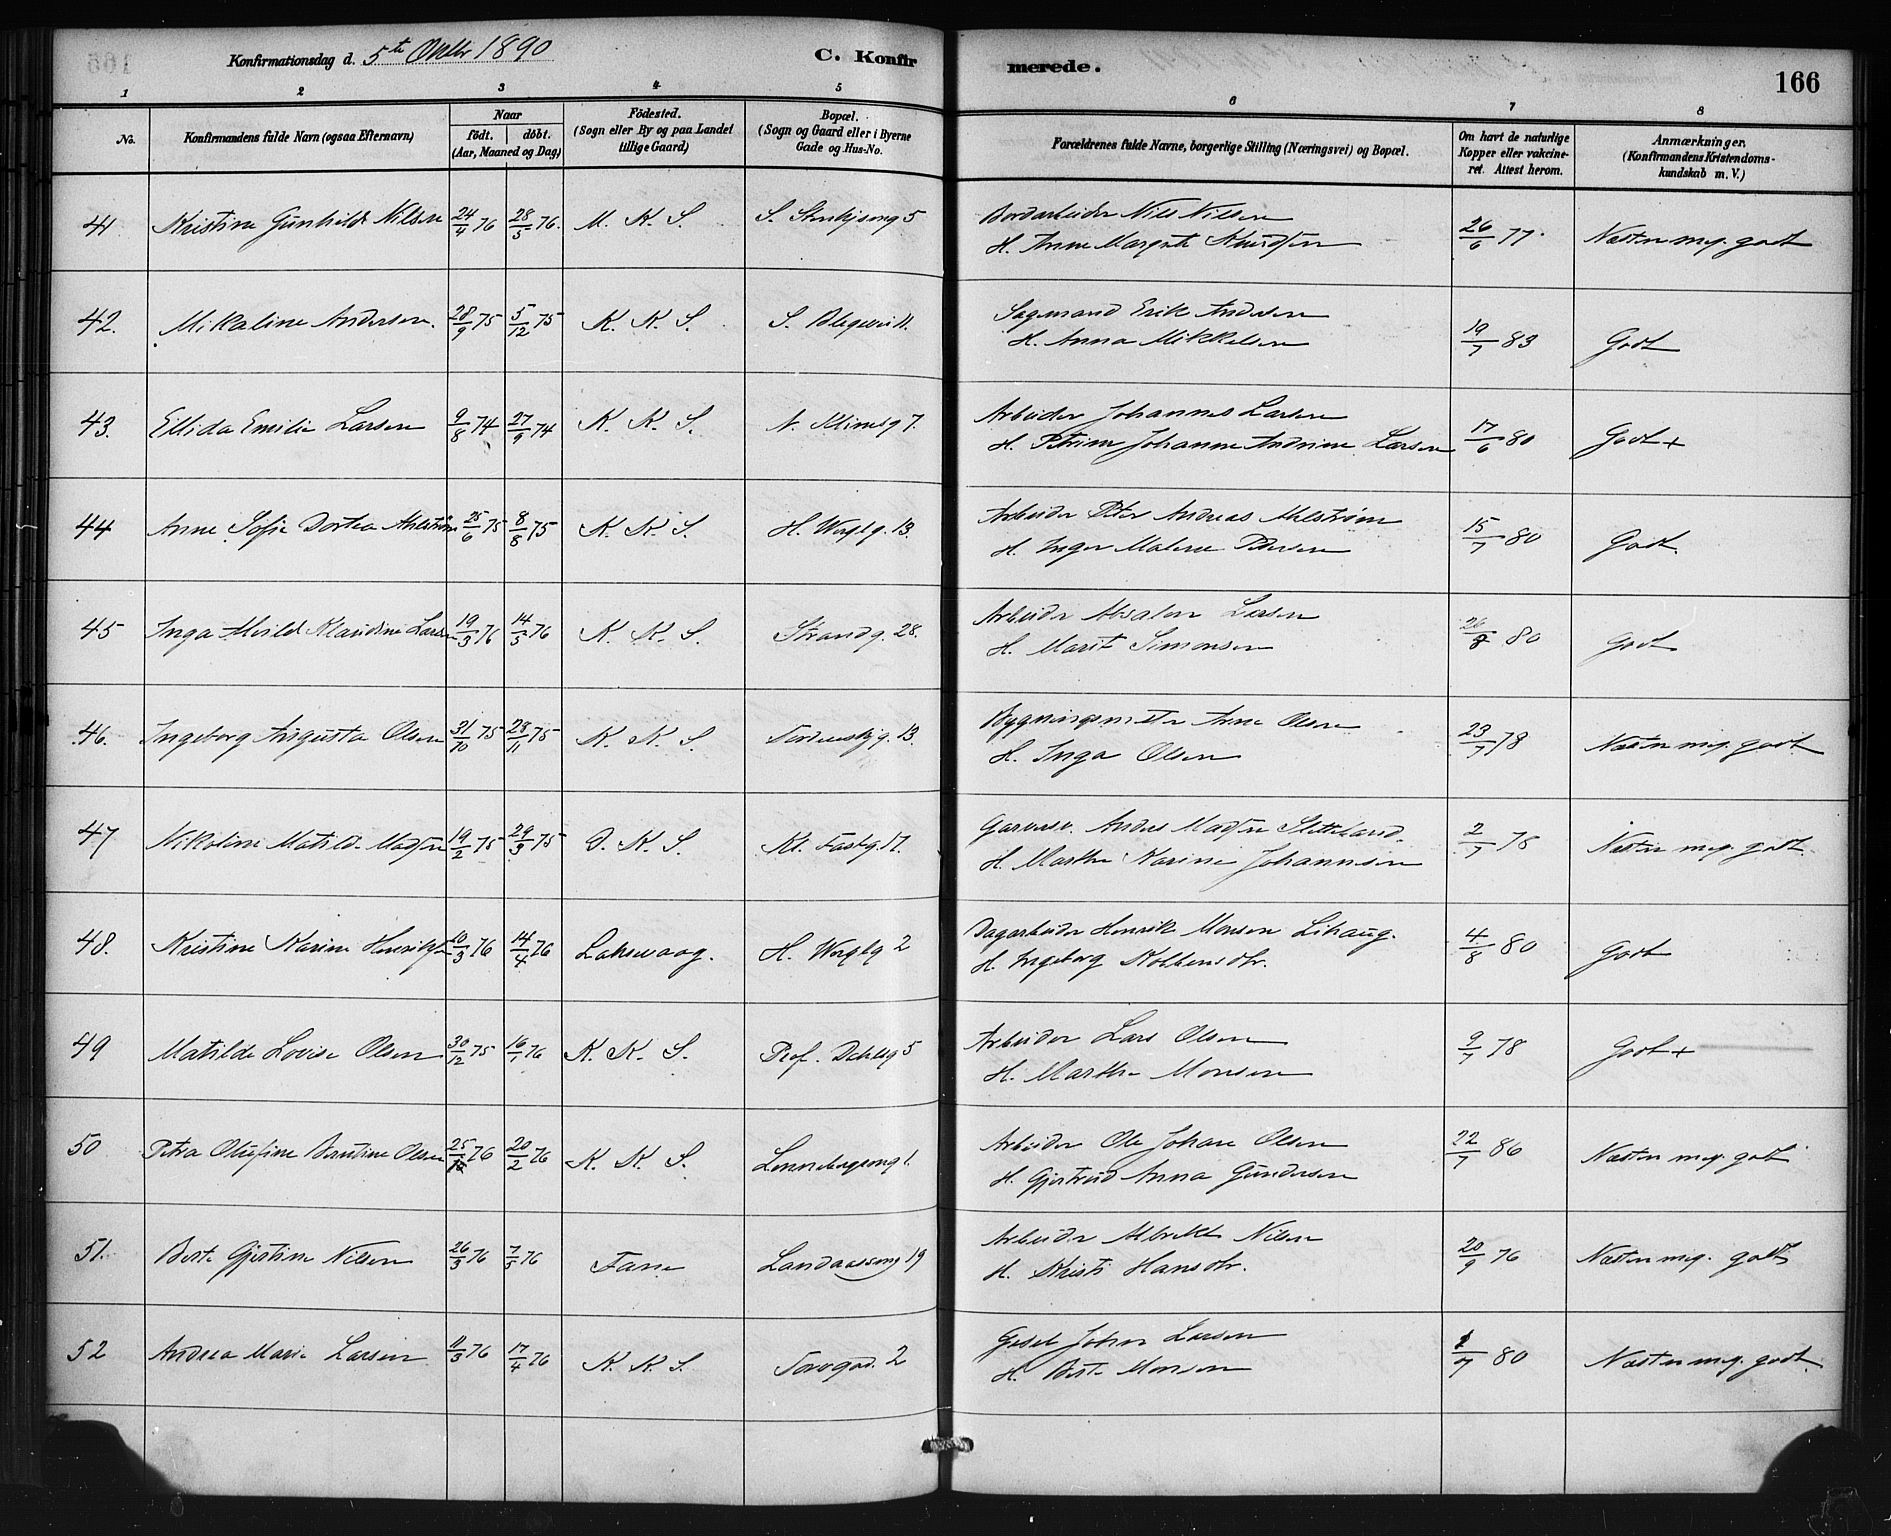 Konfirmationsdag d. 5te Octbr 1890 C. Konfirmerede. 166
1 2 3 4 5 6 7 8
No. Konfirmandens fulde Navn (ogsaa Efternavn) Naar födt. döbt. (Aar, Maaned og Dag) Födested. (Sogn eller By og paa Landet tillige Gaard) Bopæl. (Sogn og Gaard eller i Byerne Gade og Hus-No. Forældrenes fulde Navne, borgerlige Stilling (Næringsvei) og Bopæl. Om havt de naturlige Kopper eller vakcineret. Attest herom. Anmærkninger. (Konfirmandens Kristendomskundskab m. V.)
41 Kristine Gunhilde Nilsen 24/4 76 28/5 76. M. K. S. 5 Bordarbeider Nils Nilsen
H. Anne Margrete Knudsen 26/6 77. Næsten meg. godt
42. Mikaline Andersen. 28/9 75 5/12 75 K. K. S. S. Blegevei 11. Sagmand Erik Andersen
H. Anna Mikkelsen 19/7 83 Godt
43. Ellida Emilie Larsen 9/8 74 27/9 74 K. K. S. 7. Arbeider Johannes Larsen
H. Petrine Johanne Andrine Larsen 17/6 80 Godt +
44 Anne Sofie Dortea Ahlström 25/6 75 8/8 75 K. K. S. H. 13. Arbeider Peter Andreas Ahlstrøm
H. Inger Malene Pedersen 15/7 80 Godt.
45 Inga Alvild Klaudine Larsen 19/3 76 14/5 76 K. K. S. Strandg. 28. Arbeider Absalon Larsen
H. Marit Simonsen 26/8 80 Godt
46. Ingeborg Augusta Olsen 31/10 75 28/11 75 K. K. S. Tordenskj.g. 13. Bygningsmester Arne Olsen
H. Inga Olsen 23/7 78 Næsten meg. godt
47 Nikoline Matilde Madsen 19/2 75 29/3 75 D. K. S. Kl. 17. Garversv. Anders Madsen Sletteland.
H. Marthe Karine Johannesen 2/7 78 Næsten meg. godt.
48. Kristine Karine Henriksen 10/3 76 14/4 76 Laksevaag. H. 2 Dagarbeider Henrik Monsen Lihaug.
H. Ingeborg Kolbensdtr. 4/8 80 Godt
49 Matilde Lovise Olsen 30/12 75 16/1 76 K. K. S. Prof. Dahlsg 5 Arbeider Lars Olsen
H. Marthe Monsen 9/7 78 Godt +
50 Petra Olufine Berntine Olsen 25/ 76 20/2 76 K. K. S. 1. Arbeider Ole Johan Olsen
H. Gjertrud Anna Gundersen 22/7 86 Næsten meg. godt
51. Berte Gjertine Nilsen 26/3 76 7/5 76 Fane Landaassveng 19 Arbeider Albrikt Nilsen
H. Kristi Hansdtr. 20/9 76 Næsten meg. godt
52 Andrea Marie Larsen 11/3 76 17/4 76 K. K. S. Torvgad. 2 Gesel Johan Larsen
H. Berte Monsen /7 80 Næsten meg. godt.